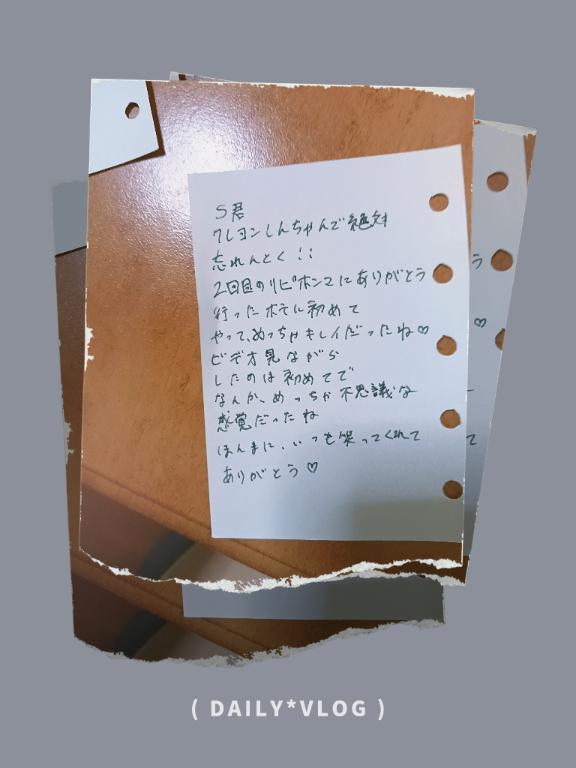 S君
クレヨンしんちゃんで絶対
忘れんとく！！
2回目のリピホンマにありがとう
行ったホテル初めて
やって、めっちゃキレイだったね♡
ビデオ見ながら
したのは初めてで
なんか、めっちゃ不思議な
感覚だったね
ほんまに、いつも笑ってくれて
ありがとう♡
う
♡
て
( DAILY*VLOG )